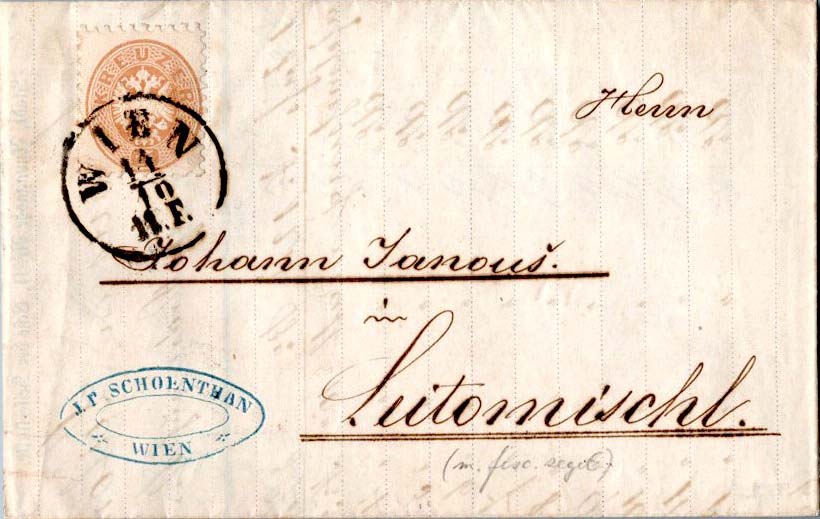 KREUZER
WIEN
14
10
11.F.
Herrn
Johann Janouš.
in
Leitomischl.
J. P. SCHOENTHAN
WIEN